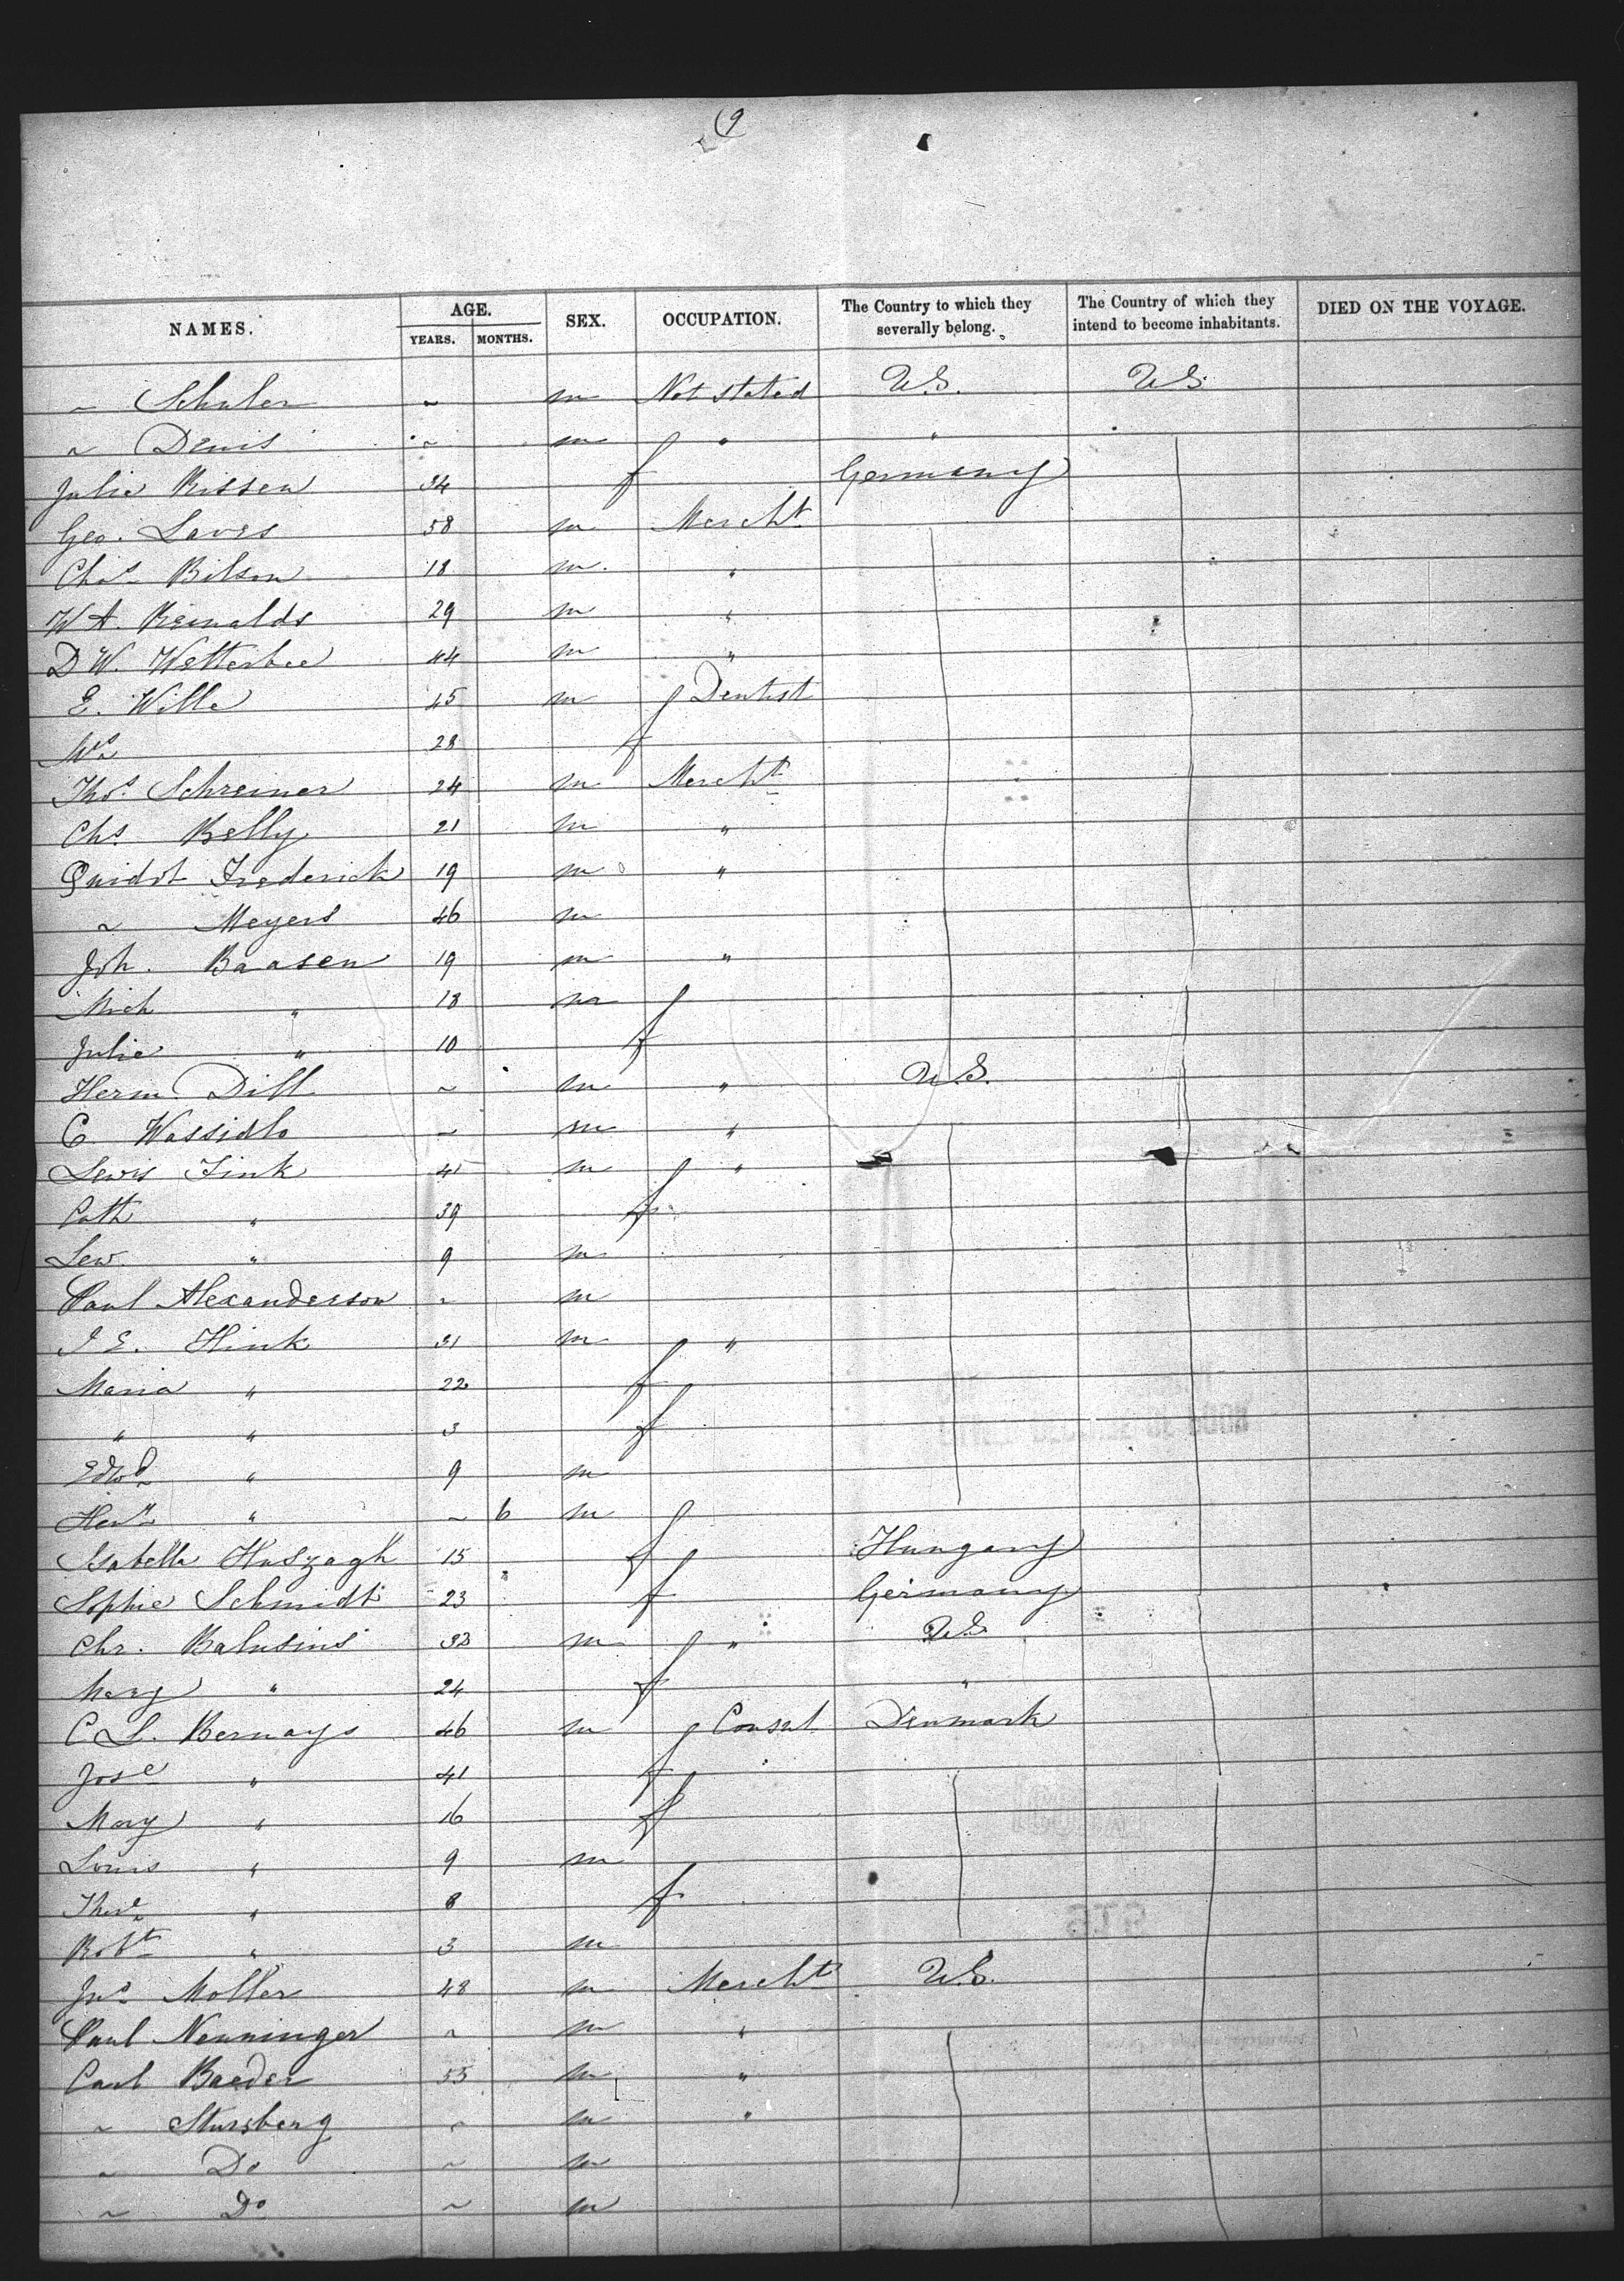 (9
NAMES. AGE. YEARS. MONTHS. SEX. OCCUPATION. The Country to which they severally belong. The Country of which they intend to become inhabitants. DIED ON THE VOYAGE.
~ Schuler ~ m Not stated U.S. U.S.
~ Denis ~ m " "
Julie Rissen 34 f Germany
Geo. Laves 58 m Mercht
Chas Bilson 18 m "
W A. Reinalds 29 m "
D W. Wetterbee 44 m "
E. Wille 45 m Dentist
Mrs 28 f
Thos Schreiner 24 m Mercht
Chs. Kelly 21 m "
Guidot Frederick 19 m "
~ Meyers 46 m
Joh. Baasen 19 m "
Mich " 18 m
Julie " 10 f
Herm Dill ~ m " U.S.
C Wassidlo ~ m "
Lewis Fink 41 m "
Cath " 39 f
Lew. " 9 m
Paul Alexanderson ~ m
J E. Hink 31 m "
Maria " 22 f
" " 3 f
Edwd " 9 m
Heny " ~ 6 m
Isabella Huszagh 15 f Hungary
Sophie Schmidt 23 f Germany
Chr. Balusins 32 m " U.S.
Marg " 24 f "
C L. Bernays 46 m Consul Denmark
Jose " 41 f
Mary " 16 f
Louis " 9 m
Ther " 8 f
Robt " 3 m
Jno Moller 48 m Mercht U.S.
Paul Nenninger ~ m "
Carl Baeder 53 m "
~ Stursberg ~ m "
~ Do ~ m
~ Do ~ m